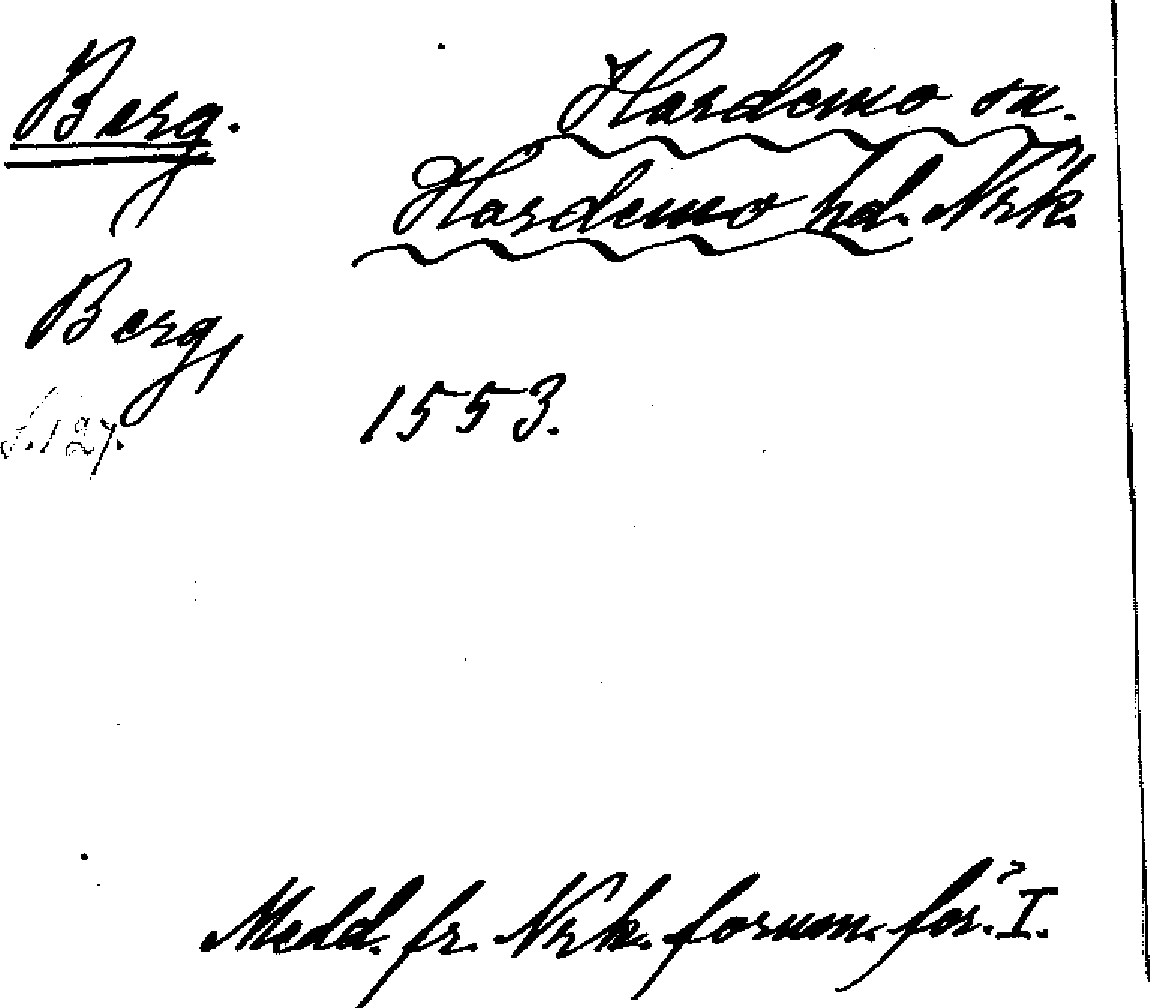 Berg. Hardemo sn.
Hardemo hd. Nrk.
Berg, 1553.
S. 127.
Medd. fr. Nrk. fornm. för. I.